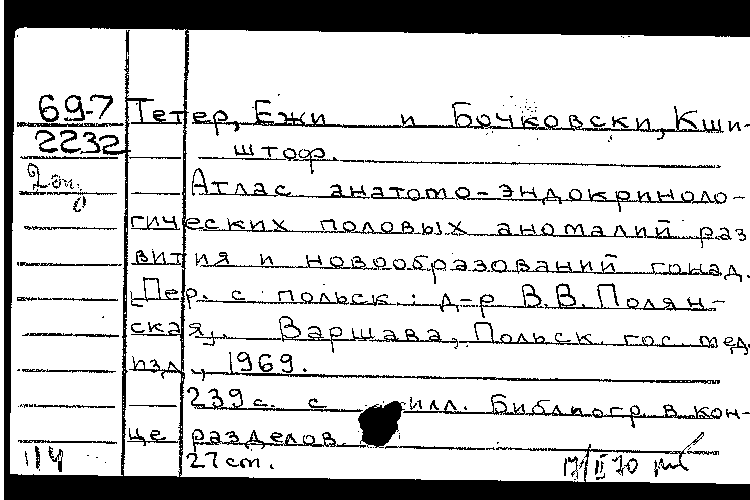 69-7 Тетер, Ежи и Бочковски, Кши-
2232 штоф.
2 эк. Атлас анатомо-эндокриноло-
гических половых аномалий раз
вития и новообразований гонад.
[Пер. с польск.: д-р В.В. Полян-
ская]. Варшава, Польск. гос. мед.
изд., 1969.
239 с. с илл. Библиогр. в кон-
це разделов.
114 27 cm. 17/II 70